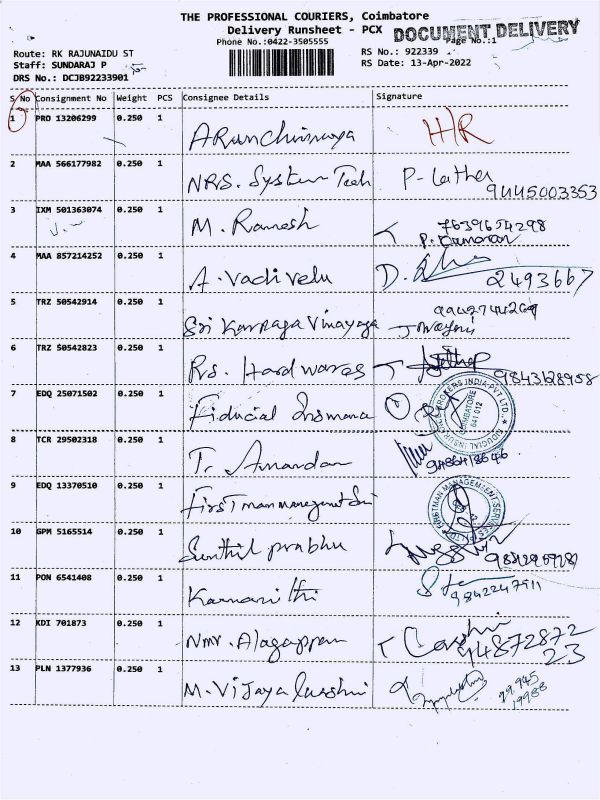 THE PROFESSIONAL COURIERS, Coimbatore
Delivery Runsheet - PCX
DOCUMENT DELIVERY
Phone No.:0422-3505555
Page No.:1
Route: RK RAJUNAIDU ST
RS No.: 922339
Staff: SUNDARAJ P
RS Date: 13-Apr-2022
DRS No.: DCJB92233901
S No Consignment No Weight PCS Consignee Details Signature
1 PRO 13206299 0.250 1 H/R
2 MAA 566177982 0.250 1 NRS. System Tech P- Latha
9445003353
3 IXM 501363074 0.250 1 M. Ramesh 7639654298
4 MAA 857214252 0.250 1 A. Vadivelu D. 2493667
5 TRZ 50542914 0.250 1 Sri Karpaga Vinayaga
6 TRZ 50542823 0.250 1 Rs. Hardwares 9843128958
7 EDQ 25071502 0.250 1 Fiducial
8 TCR 29502318 0.250 1 T. Anandan
9 EDQ 13370510 0.250 1 First man management
10 GPM 5165514 0.250 1 Senthil prabhu
11 PON 6541408 0.250 1 9842247911
12 KDI 701873 0.250 1 Nmr. Alagappan 94872872
23
13 PLN 1377936 0.250 1 M. Vijaya